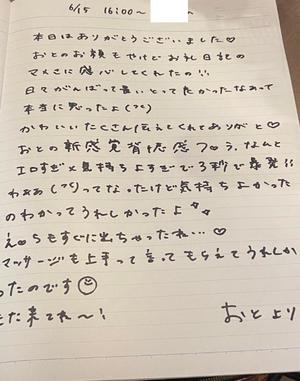 6/15 16:00〜
本日はありがとうございました♡
おとのお顔もやけどお礼日記の
マメさに感心してくれたの!!
日々がんばって書いとってよかったなあって
本当に思ったよ(?)
かわいいたくさん伝えてくれてありがと♡
おとの新感覚背徳感フ。う、なんと
エロすぎ×気持ちよすぎで3秒で暴発!!
わぁぁ(?)ってなったけど気持ちよかった
のわかってうれしかったよ
え。ちもすぐに出ちゃったね…♡
マッサージも上手って言ってもらえてうれしか
ったのです
また来てね〜!
おとより